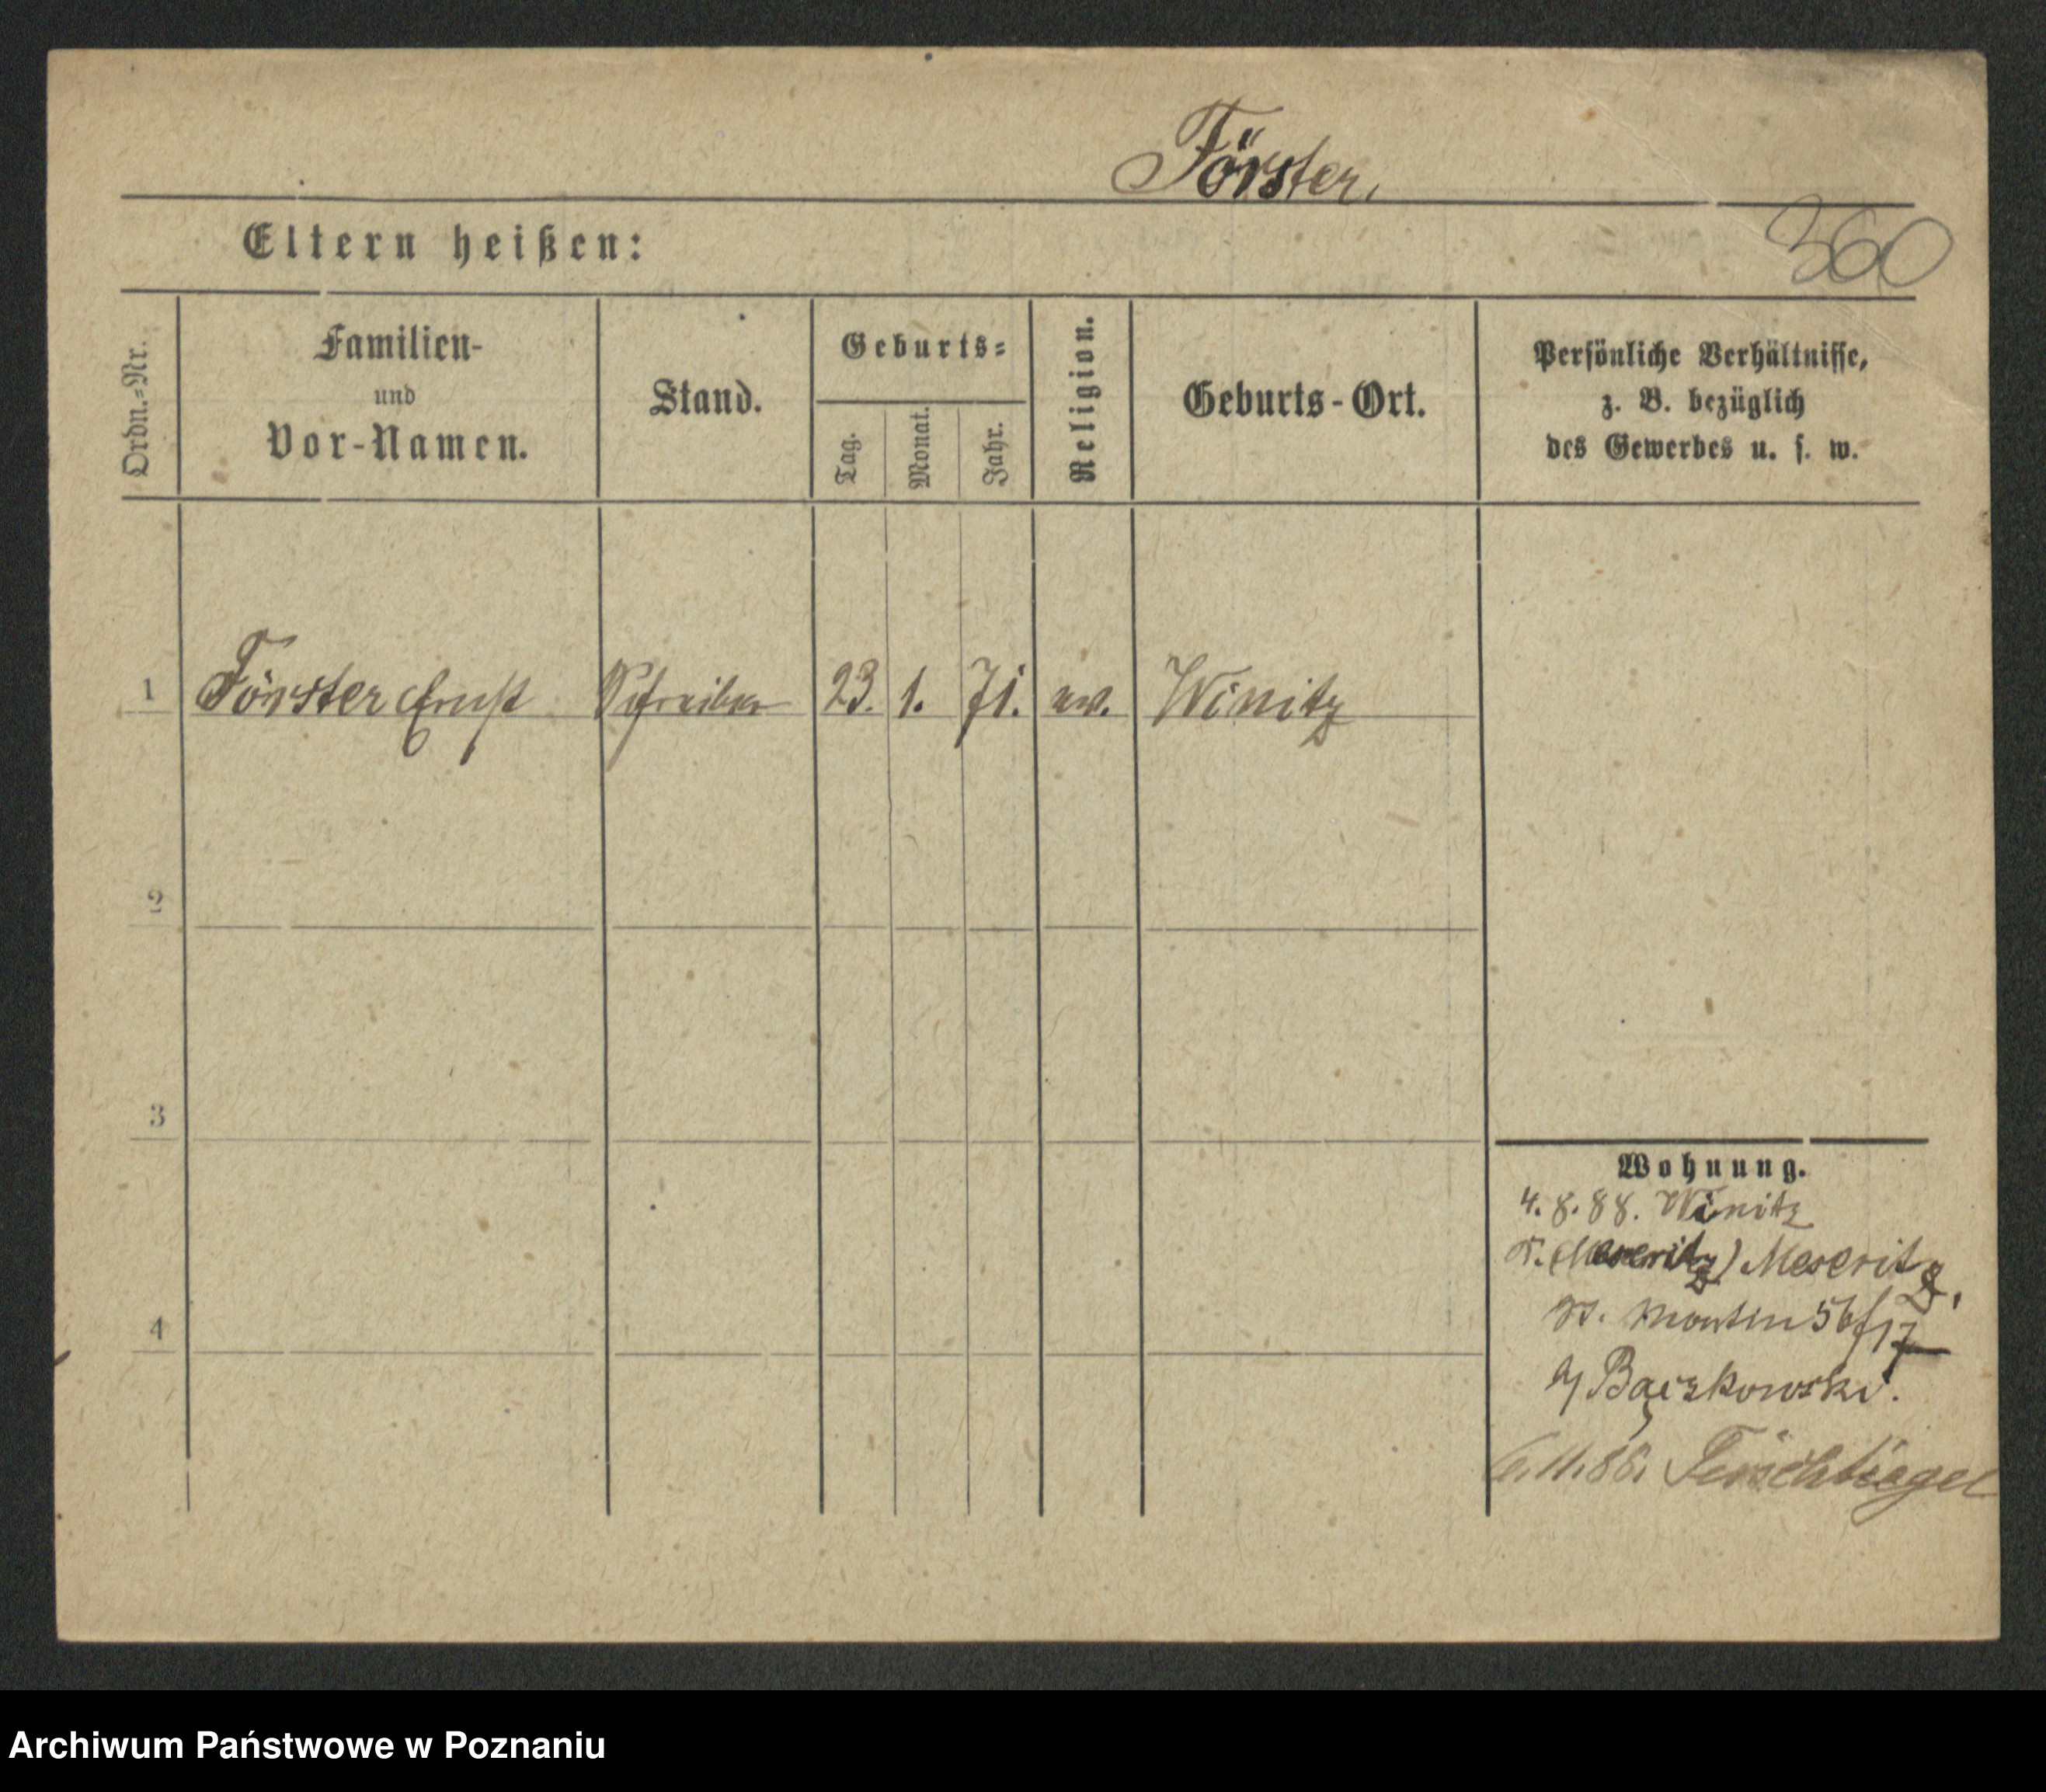 Förster.
360
Eltern heißen:
Ordn.=Nr.
Familien-
und
Vor-Namen.
Stand.
Geburts=
Tag.
Monat.
Jahr.
Religion.
Geburts-Ort.
Persönliche Verhältnisse,
z. B. bezüglich
des Gewerbes u. s. w.
1 Förster Ernst Schreiber 23. 1. 71. ev. Winitz
2
3
Wohnung.
4. 8. 88. Winitz
(Meseritz) Meseritz,
Martin 56/17
Bączkowski.
4
6. 11. 88. Tirschtiegel
Archiwum Państwowe w Poznaniu